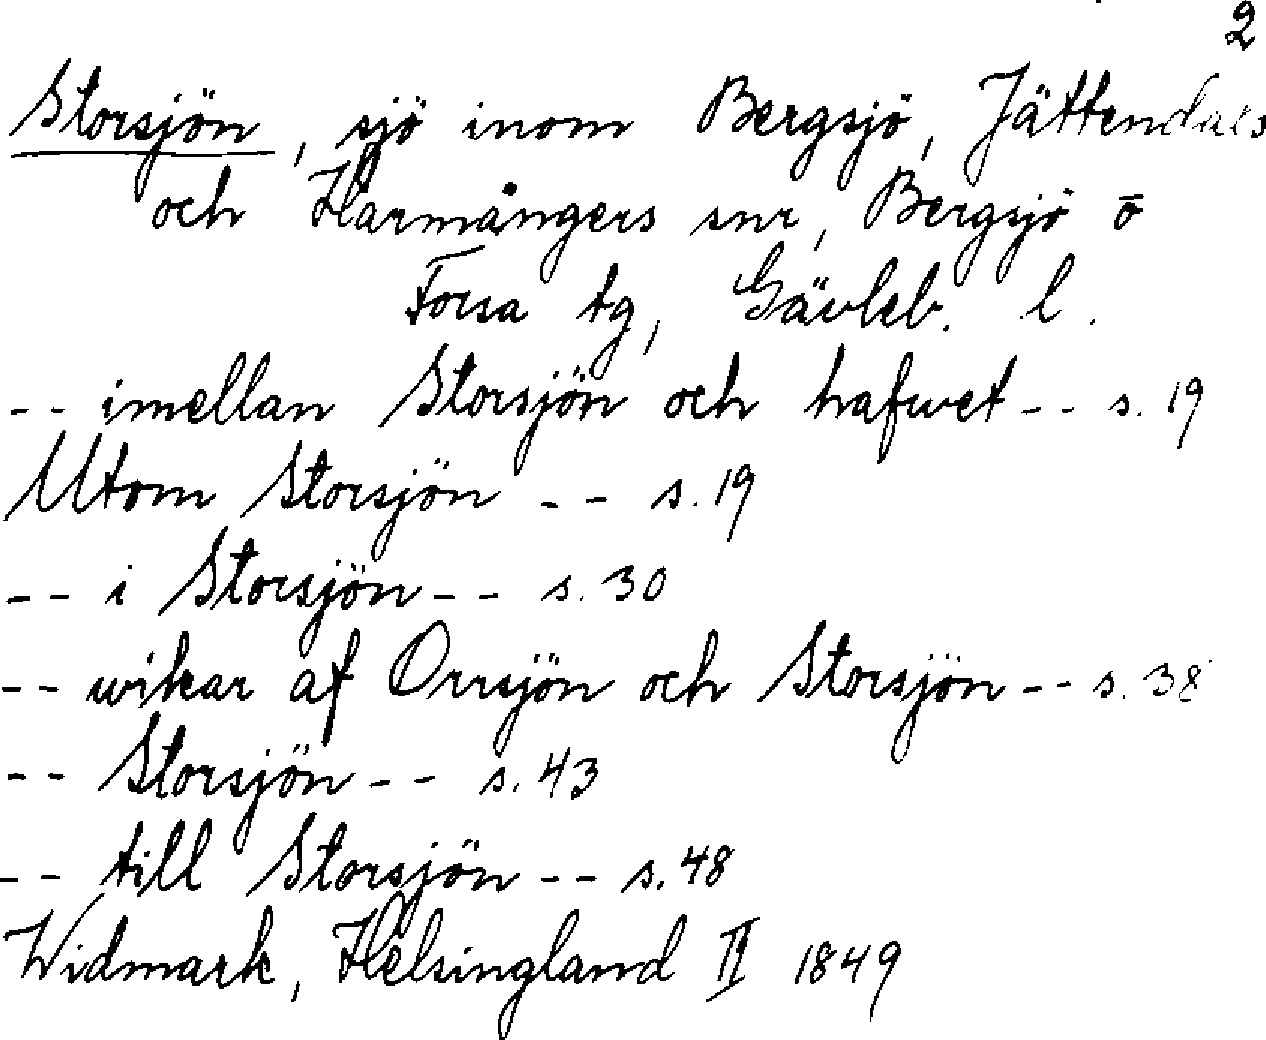 2
Storsjön, sjö inom Bergsjö, Jättendals
och Harmångers snr, Bergsjö o
Forsa tg, Gävleb. l.
-- imellan Storsjön och hafwet -- s. 19
Utom Storsjön -- s. 19
-- i Storsjön -- s. 30
-- wikar af Orrsjön och Storsjön -- s. 38
-- Storsjön -- s. 43
-- till Storsjön -- s. 48
Widmark, Helsingland II 1849